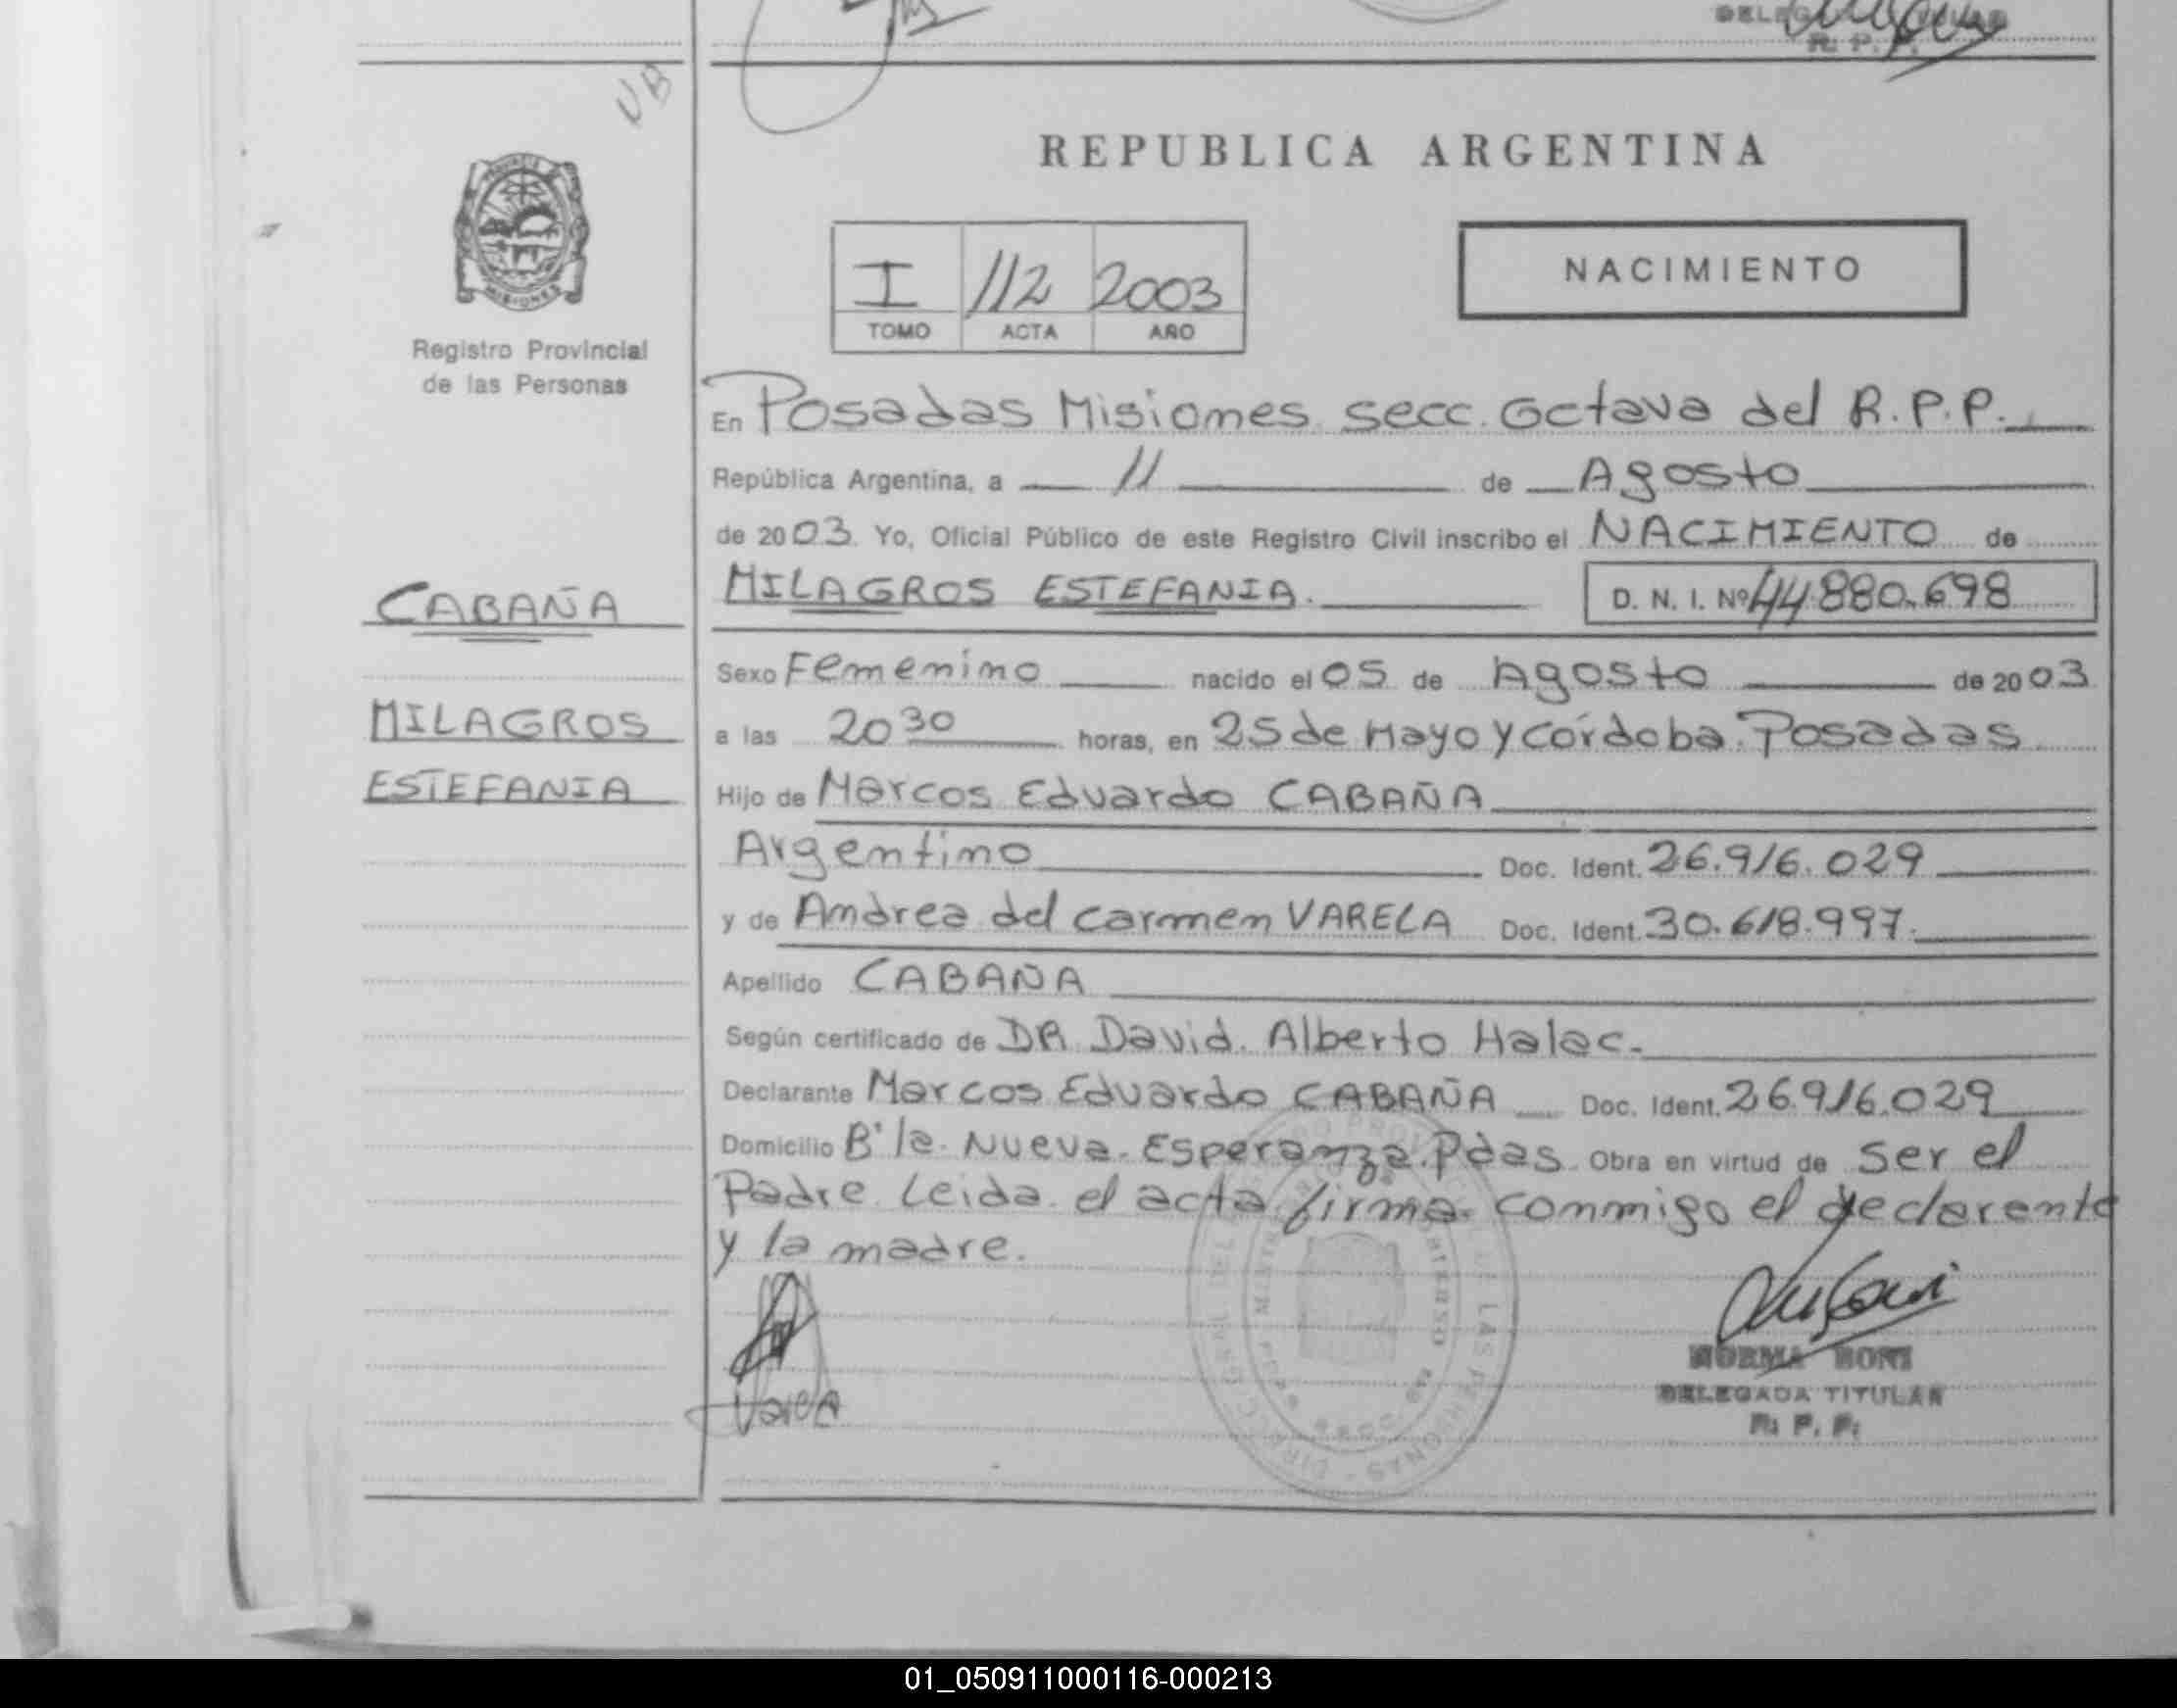 DELEGADA TITULAR
R. P. P.
UB
PROVINCIA
MISIONES
Registro Provincial
de las Personas
CABAÑA
MILAGROS
ESTEFANIA
REPUBLICA ARGENTINA
I 112 2003
TOMO ACTA AÑO
NACIMIENTO
En Posadas Misiones secc. Octava del R.P.P.
República Argentina, a 11 de Agosto
de 2003. Yo, Oficial Público de este Registro Civil inscribo el NACIMIENTO de
MILAGROS ESTEFANIA. D. N. I. Nº 44.880.698
Sexo Femenino nacido el 05 de Agosto de 2003
a las 20 30 horas, en 25 de Mayo y Córdoba. Posadas
Hijo de Marcos Eduardo CABAÑA
Argentino Doc. Ident. 26.916.029
y de Andrea del carmen VARELA Doc. Ident. 30.618.997.
Apellido CABAÑA
Según certificado de DR David. Alberto Halac.
Declarante Marcos Eduardo CABAÑA Doc. Ident. 26.916.029
Domicilio Bº la. Nueva. Esperanza. Pdas. Obra en virtud de ser el
Padre. Leida. el acta firma. conmigo el declarante
y la madre.
Varela
NORMA BONI
DELEGADA TITULAR
R. P. P.
01_050911000116-000213